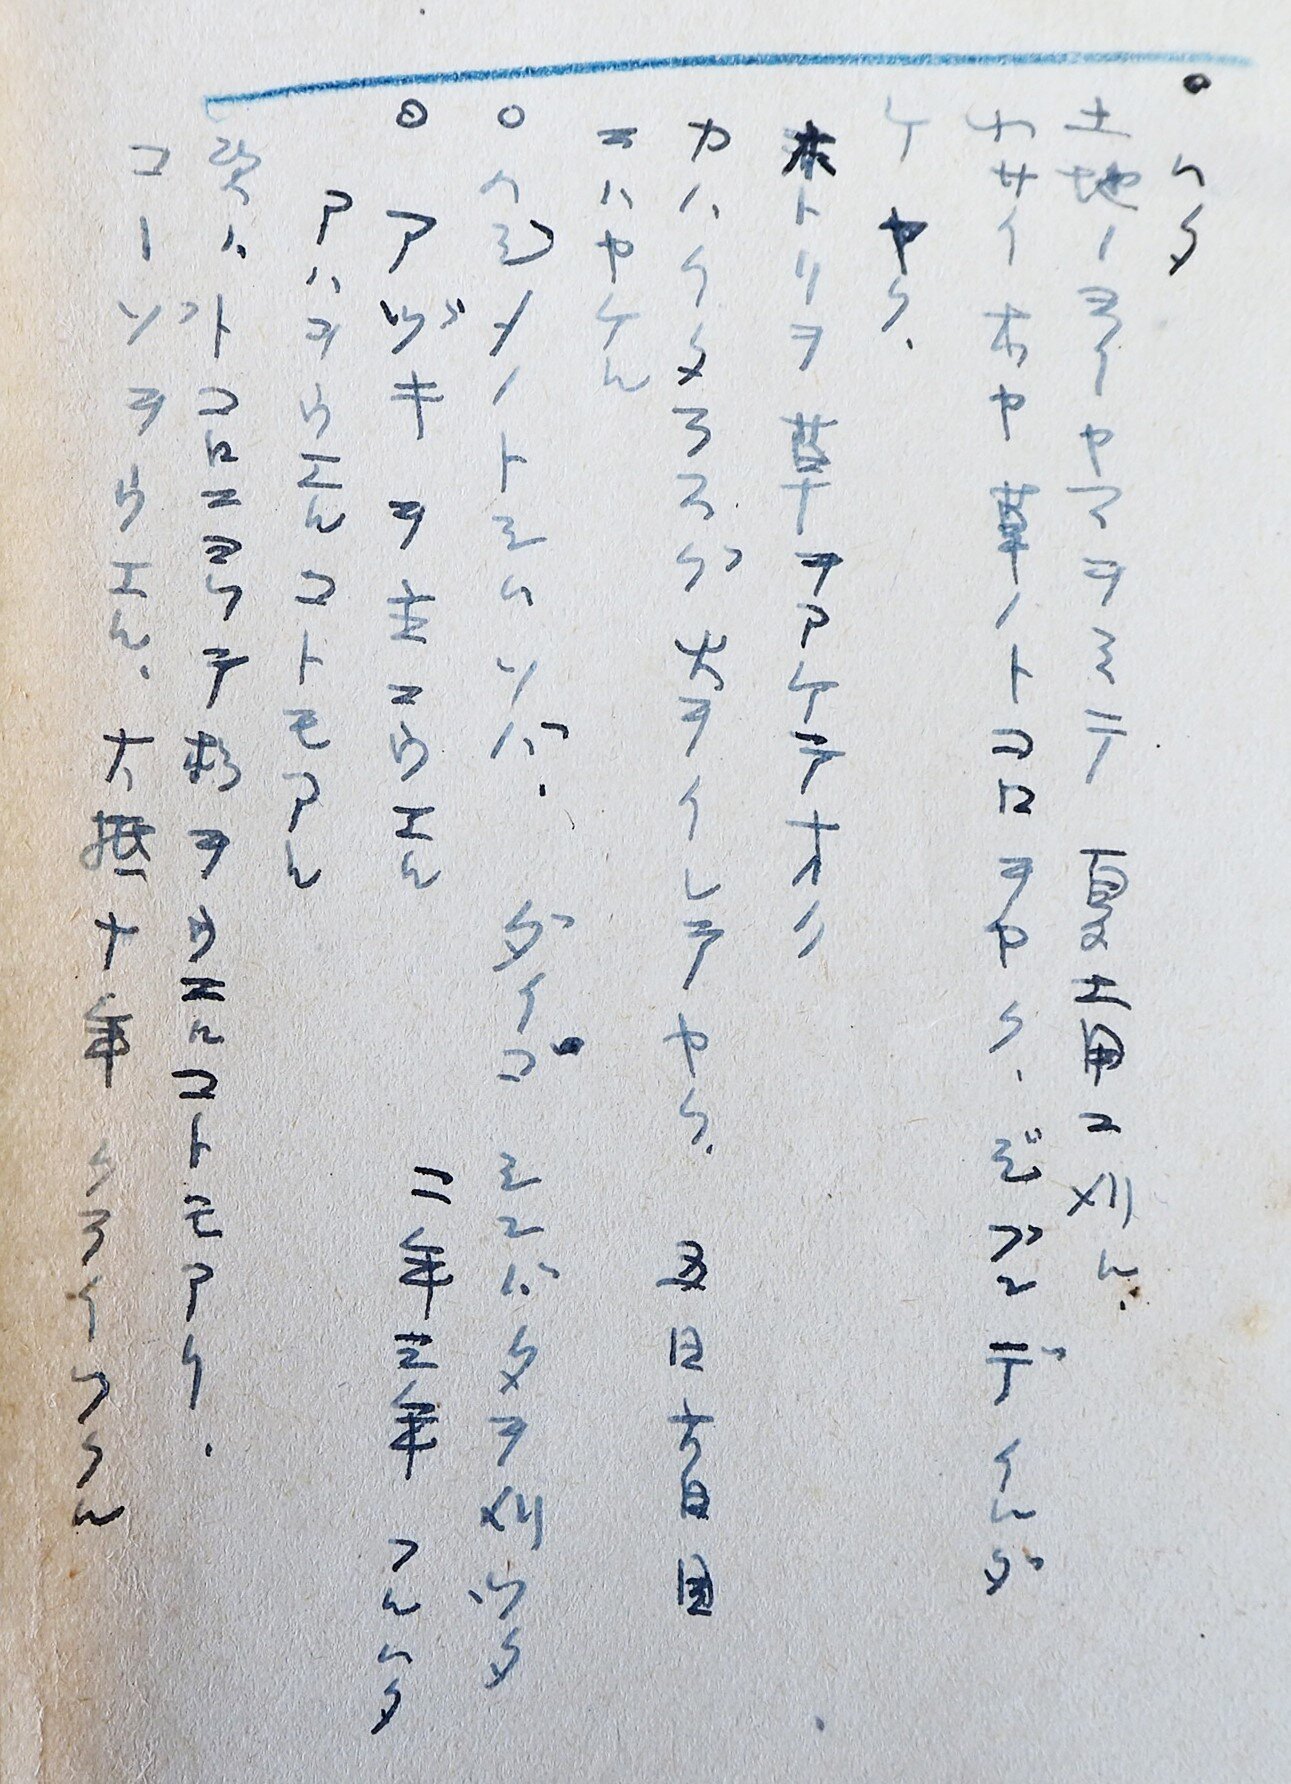 ・ハタ
土地ノヨイヤマヲミテ 夏土用ニ刈ル.
チサイ木ヤ草ノトコロヲヤク、ジブンデイルダ
ケヤク.
木トリヲ草ヲアケテオク
カハイタラスグ火ヲイレテヤク. 五日六日目
ニハヤケル
○ヘラノトミハソバ. ダイゴミンバタヲ刈ツタ
◎アヅキヲ主ニウエル 二年三年フルハタ
アハヲウエルコトモアル
次ハトコロニヨツテ杉ヲウエルコトモアリ.
コーゾヲウエル. 大抵十年クライツクル